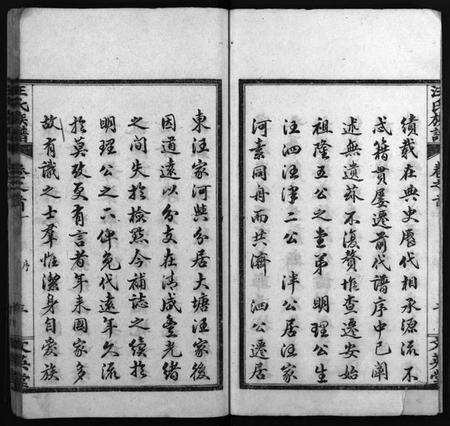 績載在典史歷代相承源流不
忒籍貫屢遷前代譜序中已闡
述無遺茲不復贅惟查遷安始
祖隆五公之堂弟 明理公生
汪四汪津二公 津公居汪家
河素同舟而共濟 泗公遷居
汪氏族譜
卷之首
東汪家河與分居大塘汪家後
因道遠以分支在清咸豐光緒
之間失於檢點今補誌之續於
明理公之下俾免代遠年久流
於莫孜更有言者年來國家多
故有識之士羣惟潔身自愛族
汪氏族譜
卷之首
序
文英堂